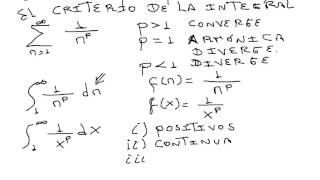 EL CRITERIO DE LA INTEGRAL
∞
∑ 1/n^p
n=1
p > 1 CONVERGE
p = 1 ARMÓNICA
DIVERGE.
p < 1 DIVERGE
∫₁^∞ 1/n^p dn
f(n) = 1/n^p
f(x) = 1/x^p
∫₁^∞ 1/x^p dx
i) POSITIVOS
ii) CONTINUA
iii